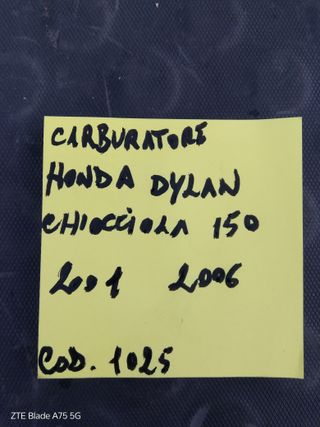 CARBURATORE
HONDA DYLAN
CHIOCCIOLA 150
2001 2006
COD. 1025
ZTE Blade A75 5G